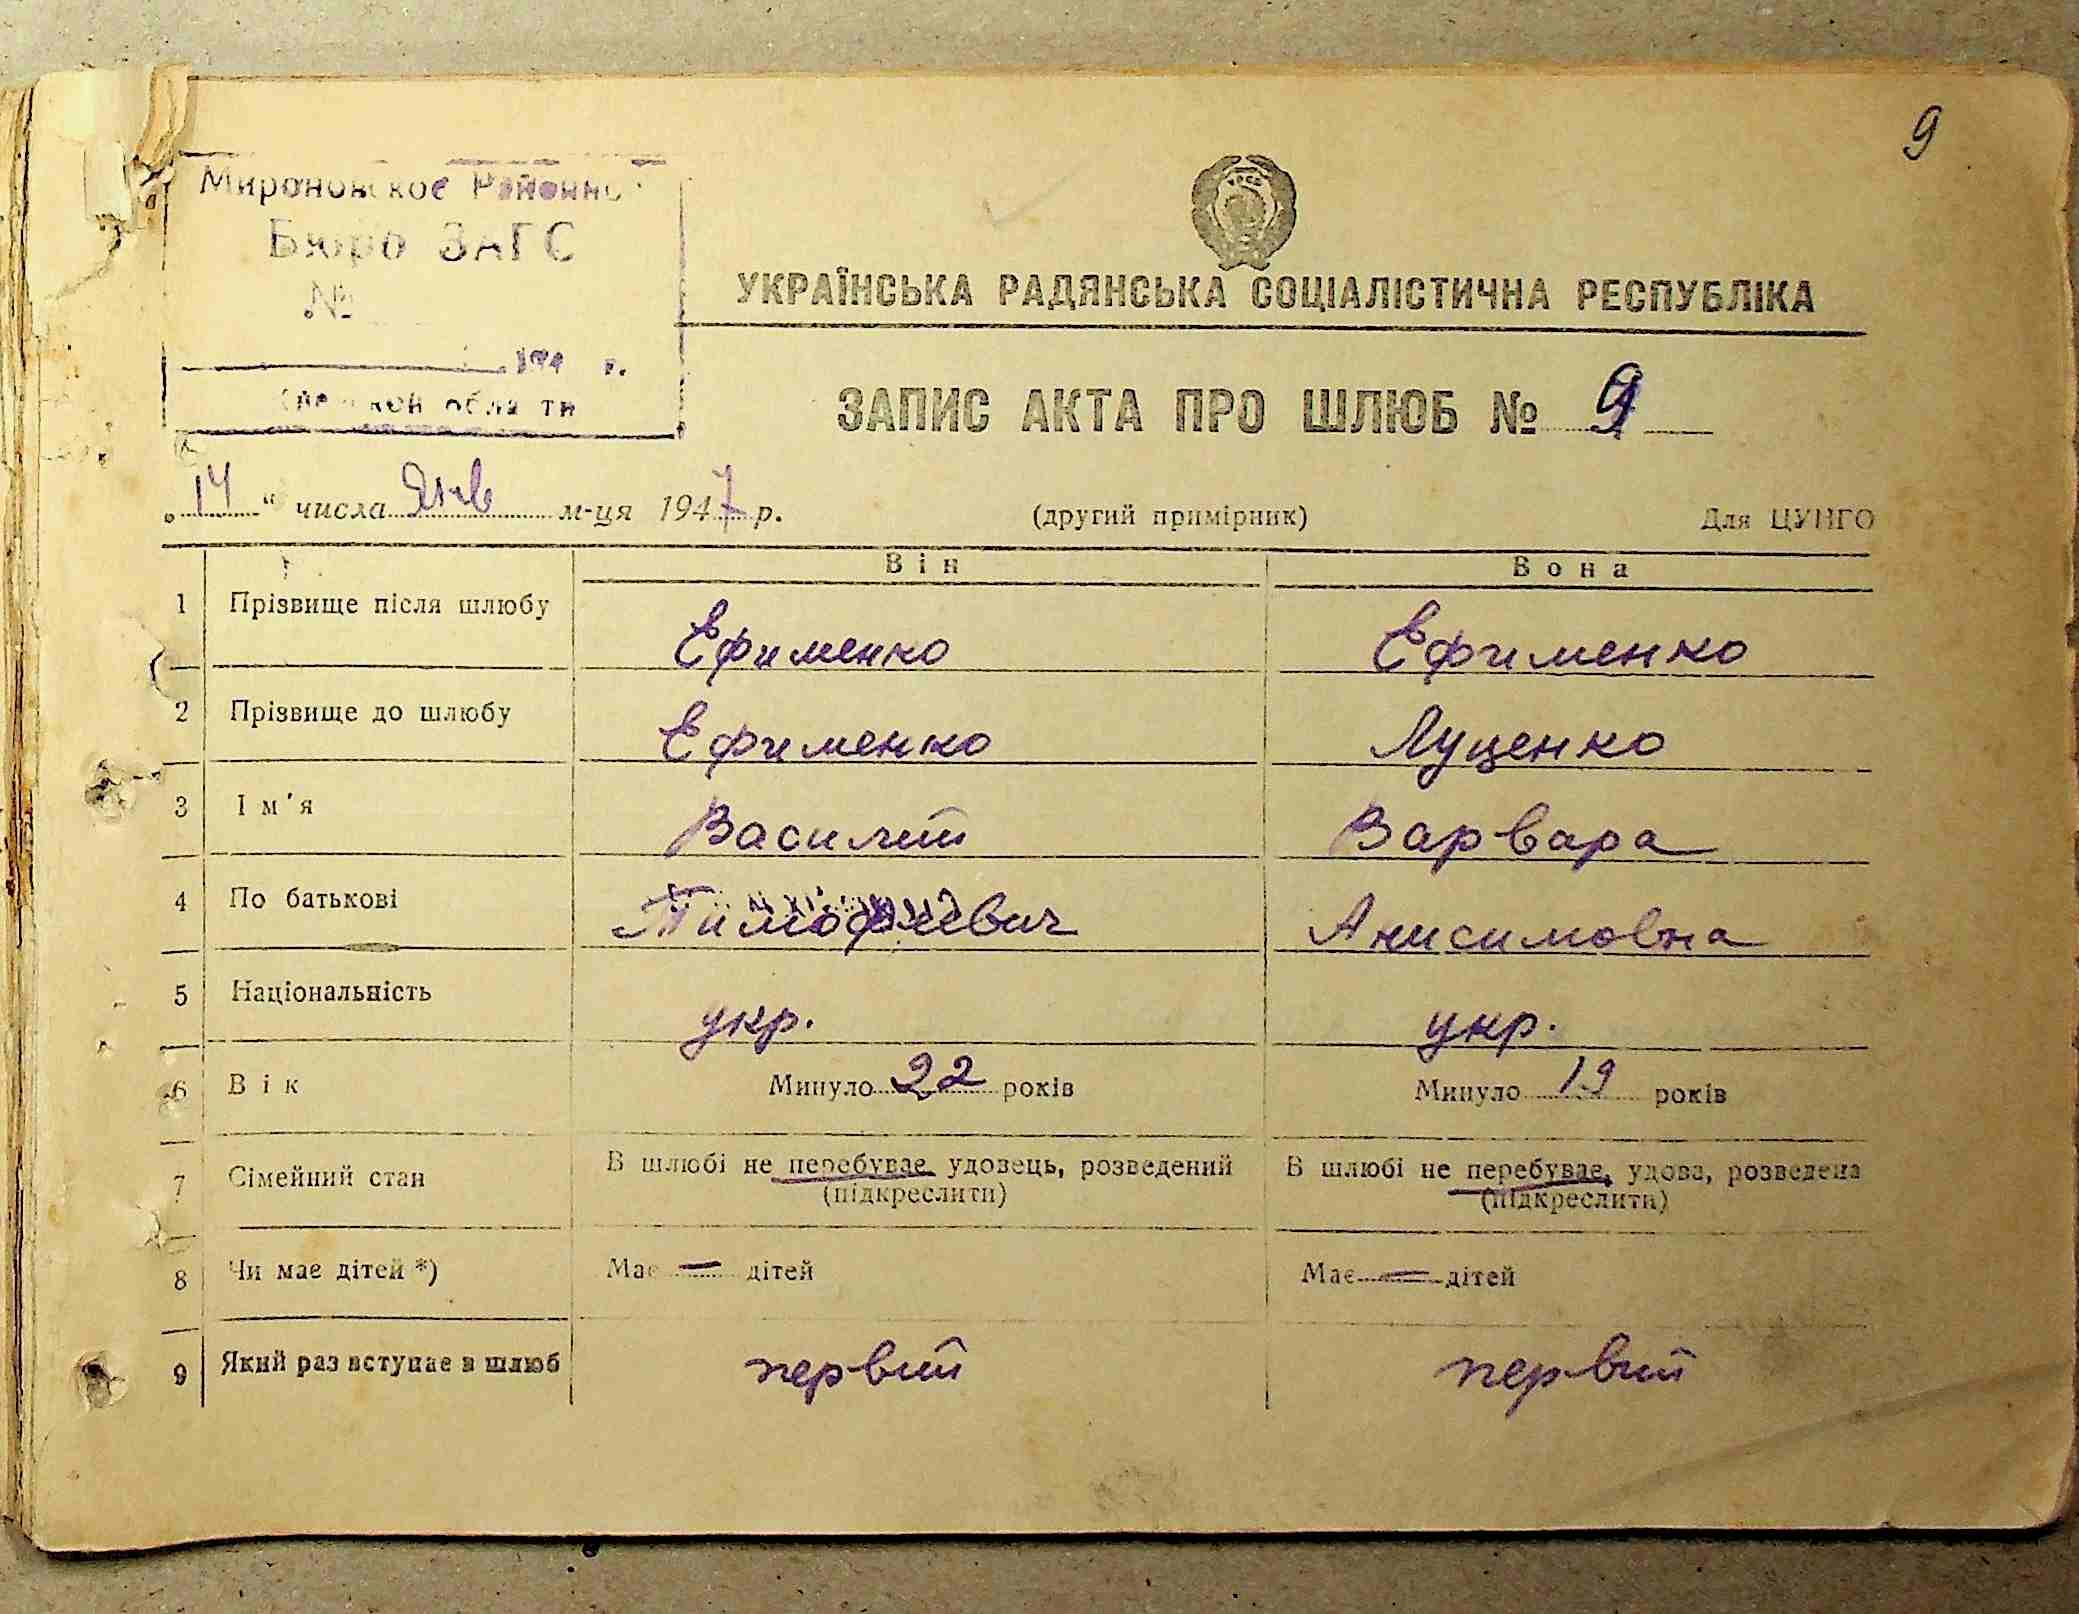 9
Мироновское Районно
Бюро ЗАГС
№
194 г.
области
УКРАЇНСЬКА РАДЯНСЬКА СОЦІАЛІСТИЧНА РЕСПУБЛІКА
ЗАПИС АКТА ПРО ШЛЮБ № 9
„14“ числа Янв м-ця 1947 р. (другий примірник) Для ЦУНГО
Він Вона
1 Прізвище після шлюбу Ефименко Ефименко
2 Прізвище до шлюбу Ефименко Луценко
3 Ім'я Василий Варвара
4 По батькові Тимофеевич Анисимовна
5 Національність укр. укр.
6 Вік Минуло 22 років Минуло 19 років
7 Сімейний стан В шлюбі не перебуває, удовець, розведений В шлюбі не перебуває, удова, розведена
(підкреслити) (підкреслити)
8 Чи має дітей *) Має — дітей Має — дітей
9 Який раз вступає в шлюб первий первий